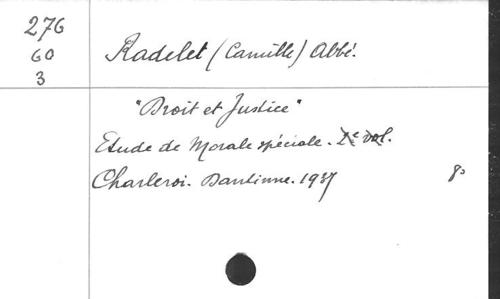 276
60
3
Radelet (Camille) Abbé.
"Droit et Justice"
Etude de Morale spéciale. 2e vol.
Charleroi. Dantinne. 1937 8°